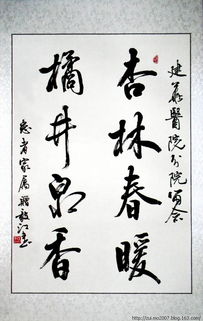 建华醫院分院留念
杏林春暖
橘井泉香
患者家属
http://tsi.mo2007.blog.163.com/